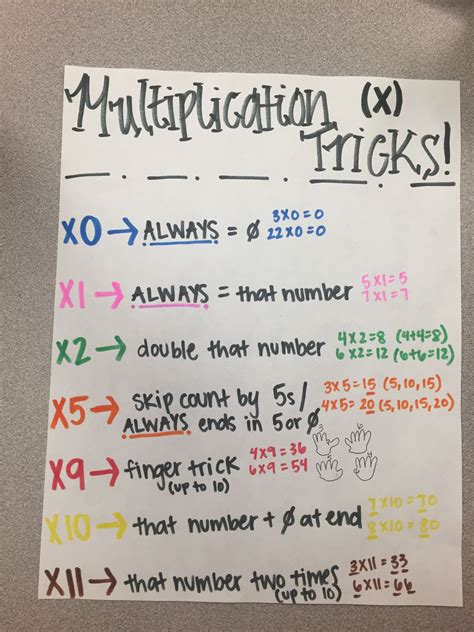 Multiplication (x)
Tricks!
x0 → ALWAYS = Ø 3x0=0
22x0=0
x1 → ALWAYS = that number 5x1=5
7x1=7
x2 → double that number 4x2=8 (4+4=8)
6x2=12 (6+6=12)
x5 → skip count by 5s/ 3x5=15 (5,10,15)
ALWAYS ends in 5 or Ø 4x5=20 (5,10,15,20)
x9 → finger trick 4x9=36
(up to 10) 6x9=54
x10 → that number + Ø at end 7x10=70
8x10=80
x11 → that number two times 3x11=33
(up to 10) 6x11=66